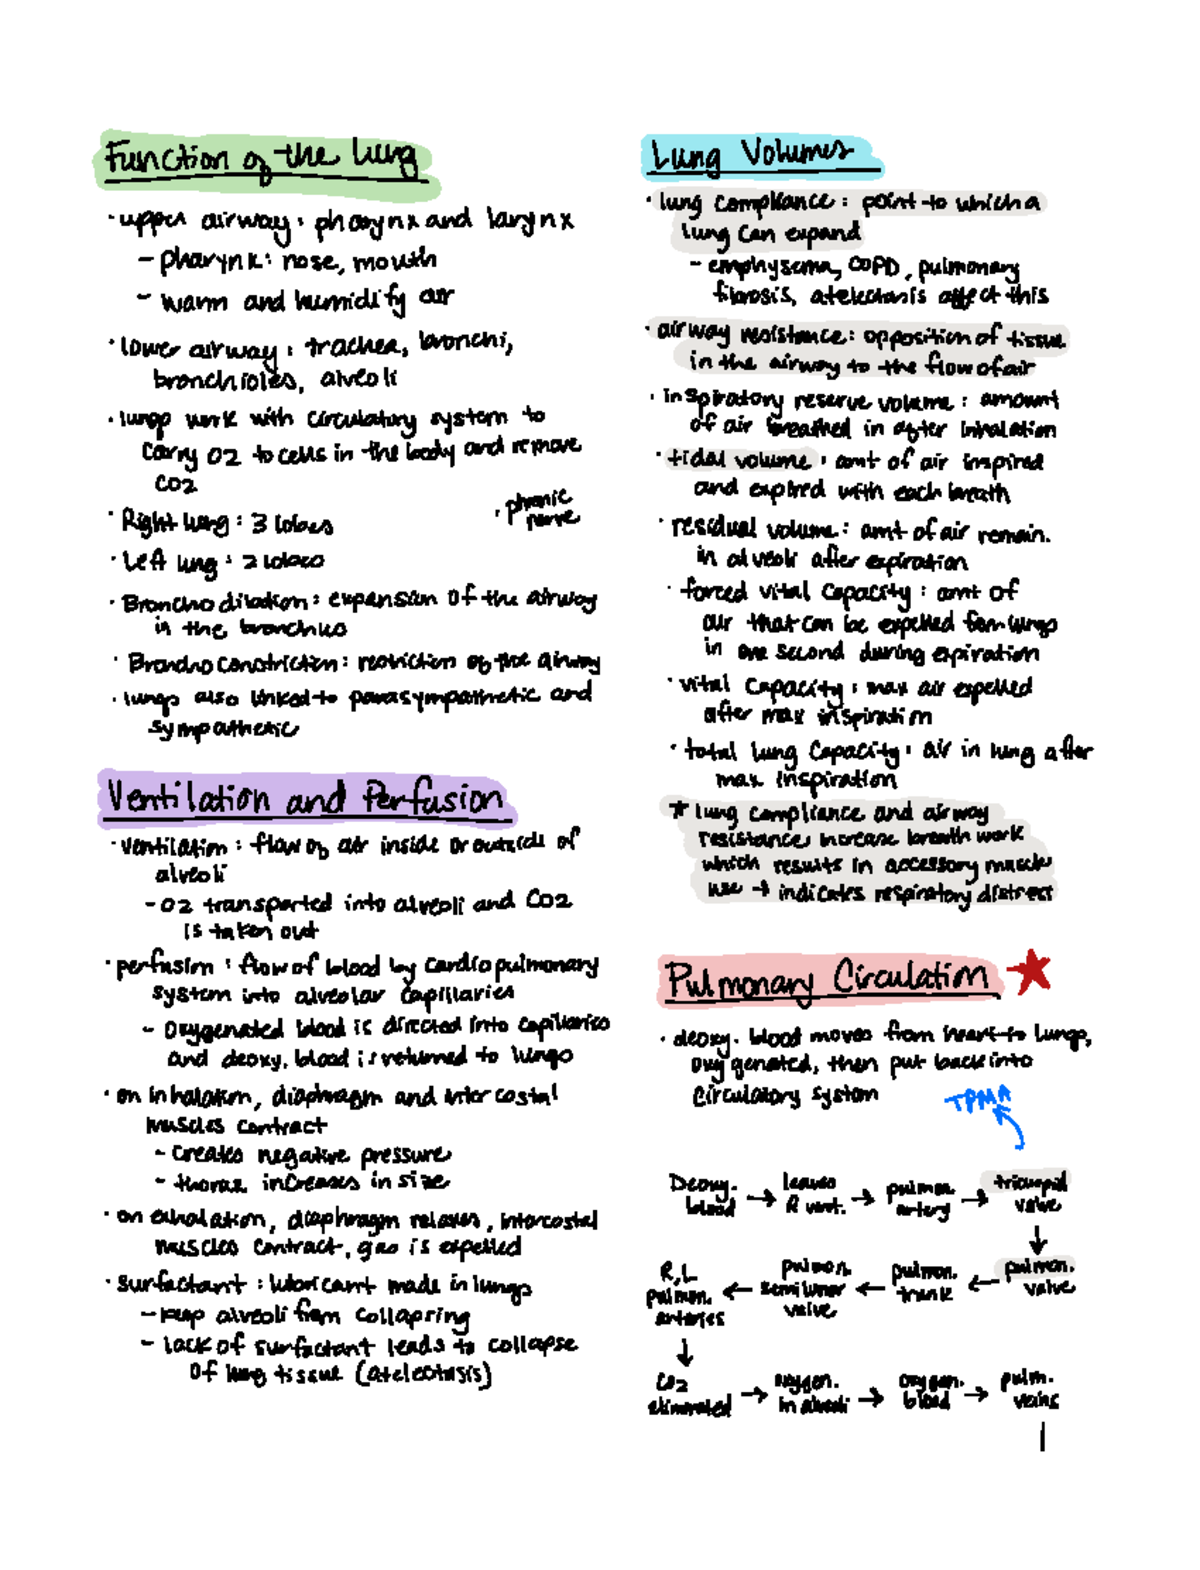 Function of the Lung
· upper airway: pharynx and larynx
- pharynx: nose, mouth
- warm and humidify air
· lower airway: trachea, bronchi,
bronchioles, alveoli
· lungs work with circulatory system to
carry O2 to cells in the body and remove
CO2
· Right lung: 3 lobes
· phrenic
nerve
· Left lung: 2 lobes
· Bronchodilation: expansion of the airway
in the bronchus
· Bronchoconstriction: restriction of the airway
· lungs also linked to parasympathetic and
sympathetic
Ventilation and Perfusion
· ventilation: flow of air inside or outside of
alveoli
- O2 transported into alveoli and CO2
is taken out
· perfusion: flow of blood by cardiopulmonary
system into alveolar capillaries
- oxygenated blood is directed into capillaries
and deoxy. blood is returned to lungs
· on inhalation, diaphragm and intercostal
muscles contract
- creates negative pressure
- thorax increases in size
· on exhalation, diaphragm relaxes, intercostal
muscles contract, gas is expelled
· surfactant: lubricant made in lungs
- keep alveoli from collapsing
- lack of surfactant leads to collapse
of lung tissue (atelectasis)
Lung Volumes
· lung compliance: point to which a
lung can expand
- emphysema, COPD, pulmonary
fibrosis, atelectasis affect this
· airway resistance: opposition of tissue
in the airway to the flow of air
· inspiratory reserve volume: amount
of air breathed in after inhalation
· tidal volume: amt of air inspired
and expired with each breath
· residual volume: amt of air remain.
in alveoli after expiration
· forced vital capacity: amt of
air that can be expelled from lungs
in one second during expiration
· vital capacity: max air expelled
after max inspiration
· total lung capacity: air in lung after
max inspiration
* lung compliance and airway
resistance increase breath work
which results in accessory muscle
use → indicates respiratory distress
Pulmonary Circulation ★
· deoxy. blood moves from heart to lungs,
oxygenated, then put back into
circulatory system
TPMA
Deoxy. blood → leaves R vent. → pulmon. artery → tricuspid valve
↓
R,L pulmon. arteries ← pulmon. semilunar valve ← pulmon. trunk ← pulmon. valve
↓
CO2 eliminated → oxygen. in alveoli → oxygen. blood → pulm. veins
|